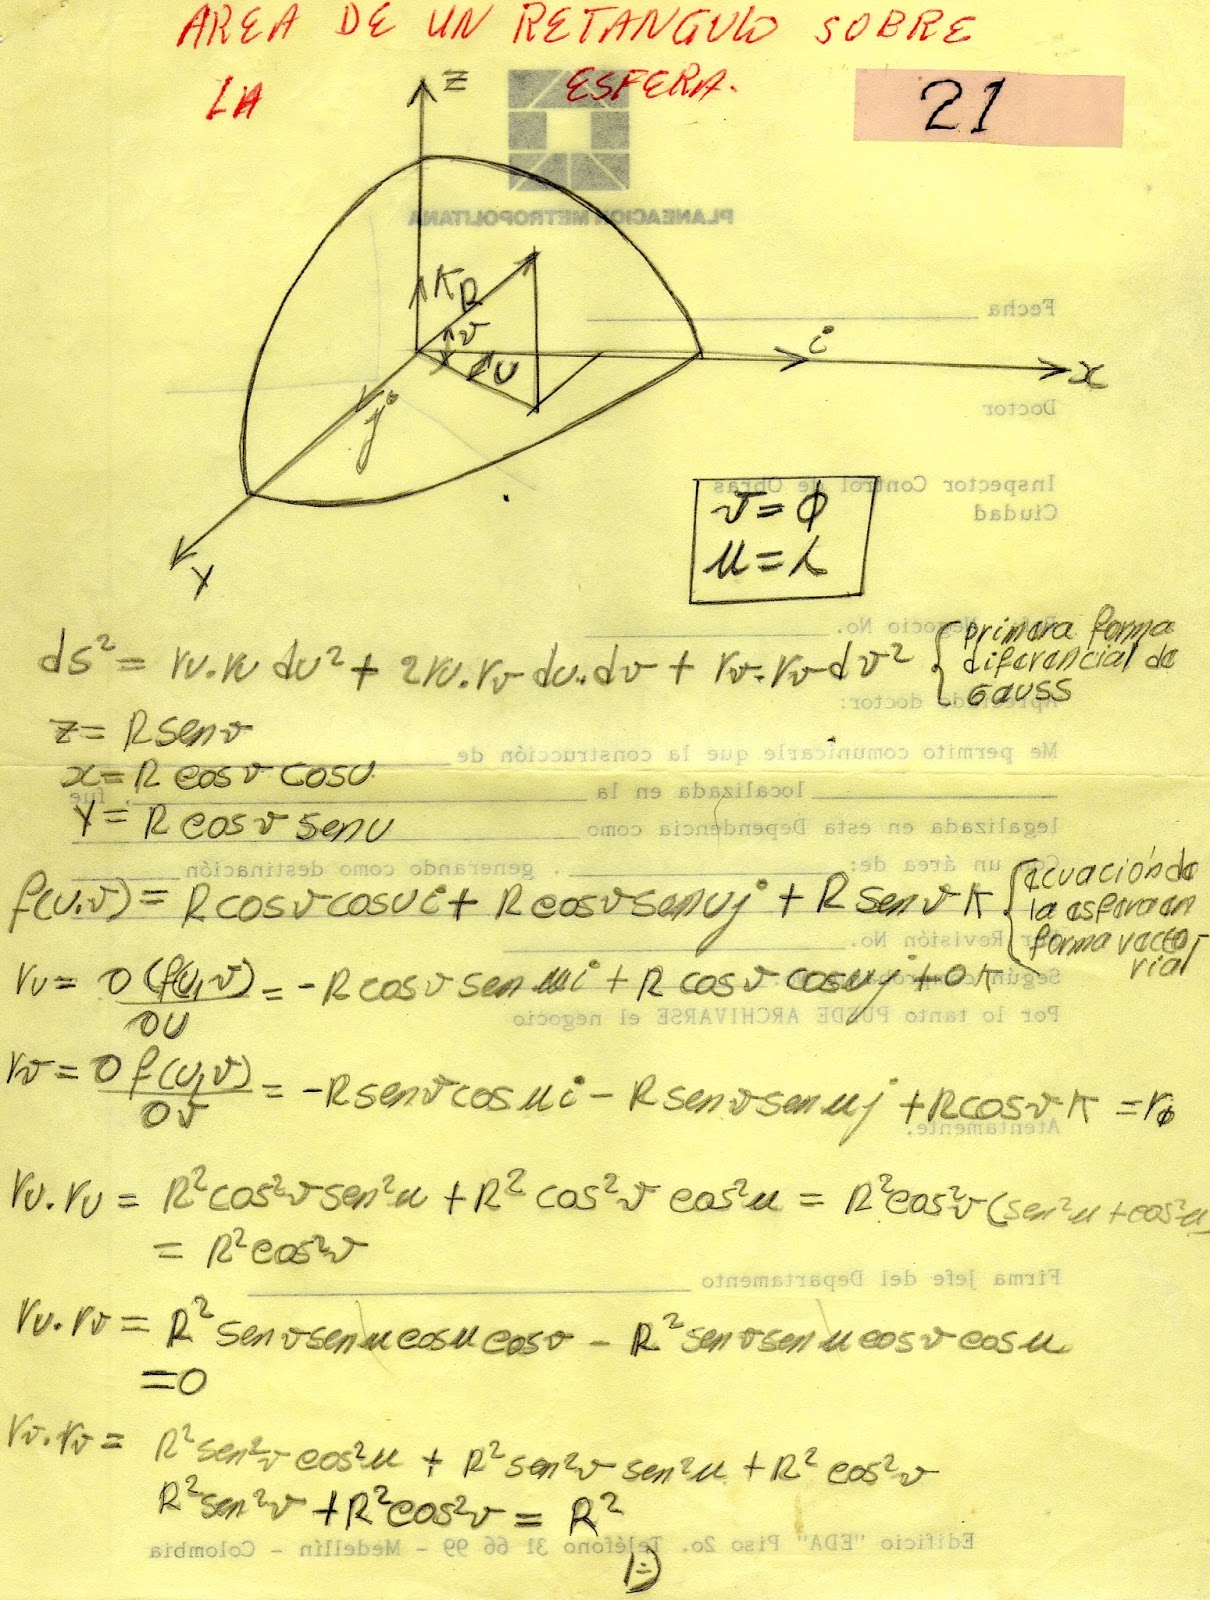 AREA DE UN RETANGULO SOBRE
LA ESFERA.
21
PLANEACION METROPOLITANA
z
K
R
v
U
i
x
j
Y
Fecha
Doctor
Inspector Control de Obras
Ciudad
v = ϕ
u = λ
Negocio No.
ds² = ru.ru du² + 2ru.rv du.dv + rv.rv dv² { primera forma
diferencial de
Gauss
doctor:
z = R sen v
Me permito comunicarle que la construcción de
x = R cos v cos u
localizada en la , fue
Y = R cos v sen u
legalizada en esta Dependencia como
un área de: . generando como destinación
f(u,v) = R cos v cos u i + R cos v sen u j + R sen v K { ecuación de
la esfera en
forma vecto-
rial
Revisión No.
Según
ru = ∂(f(u,v)) / ∂u = -R cos v sen u i + R cos v cos u j + 0 K
Por lo tanto PUEDE ARCHIVARSE el negocio
rv = ∂f(u,v) / ∂v = -R sen v cos u i - R sen v sen u j + R cos v K = rϕ
Atentamente.
ru.ru = R² cos² v sen² u + R² cos² v cos² u = R² cos² v (sen² u + cos² u
= R² cos² v
Firma Jefe del Departamento
ru.rv = R² sen v sen u cos u cos v - R² sen v sen u cos v cos u
= 0
rv.rv = R² sen² v cos² u + R² sen² v sen² u + R² cos² v
R² sen² v + R² cos² v = R²
Edificio "EDA" Piso 2o. Teléfono 31 66 99 - Medellín - Colombia